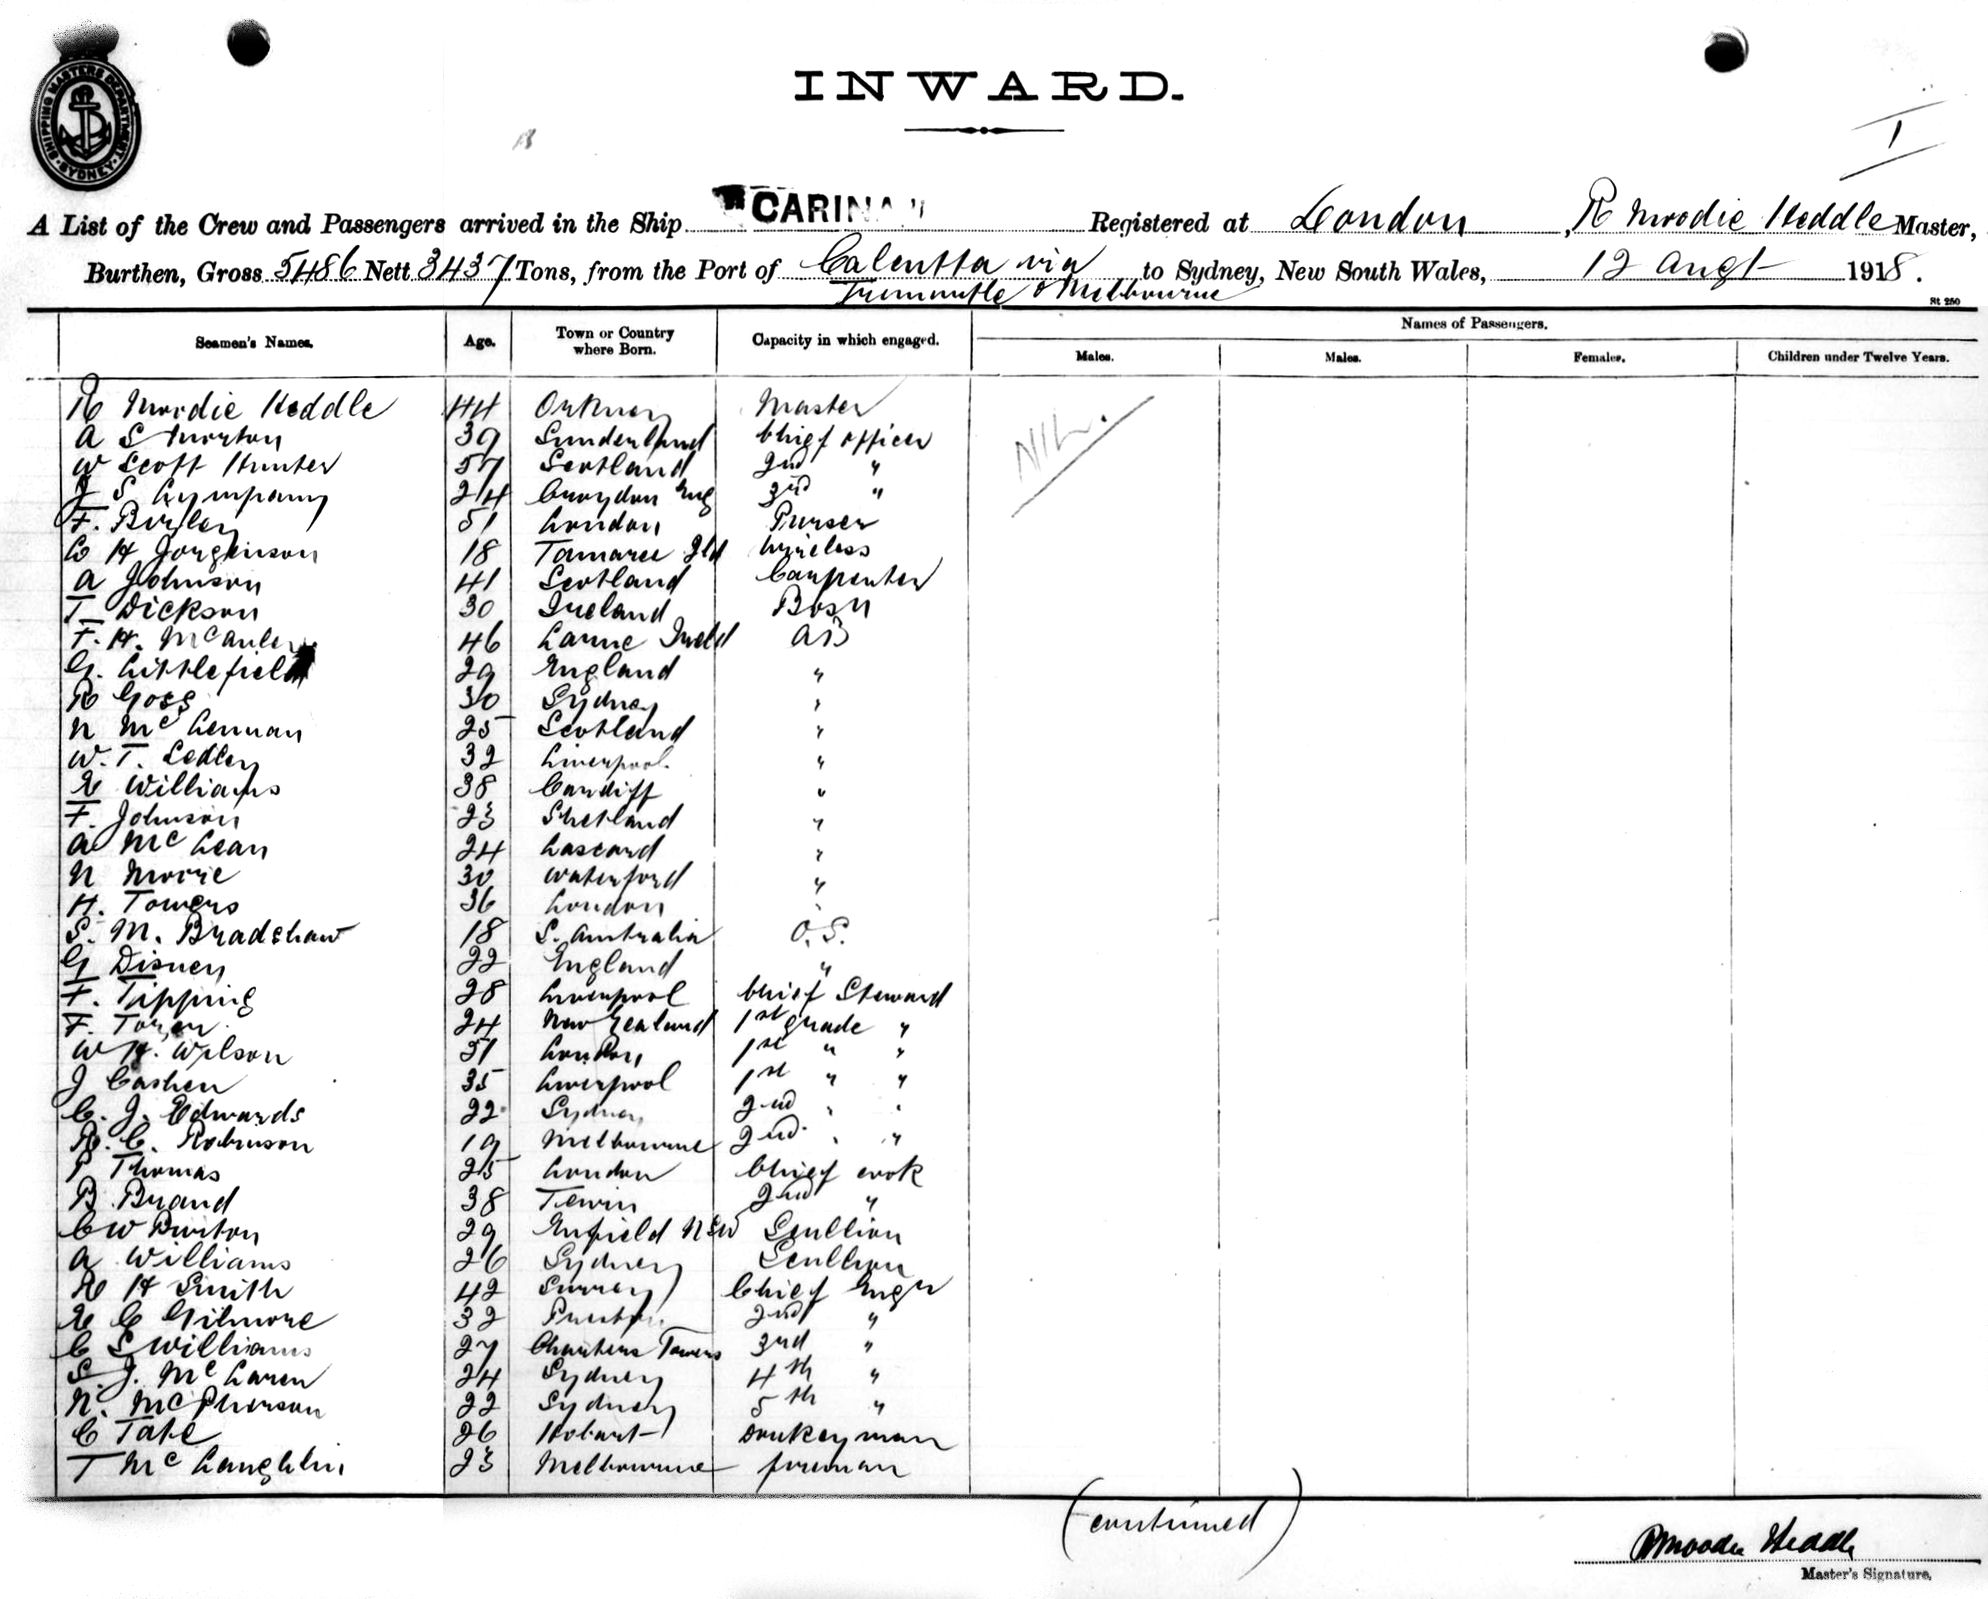 SHIPPING MASTERS DEPARTMENT. SYDNEY
INWARD.
1
A List of the Crew and Passengers arrived in the Ship "CARINA" Registered at London, R Moodie Heddle Master,
Burthen, Gross 5486 Nett 3437 Tons, from the Port of Calcutta via to Sydney, New South Wales, 12 Augt 1918.
Fremantle & Melbourne
St 250
Seamen's Names. Age. Town or Country where Born. Capacity in which engaged. Names of Passengers.
Males. Males. Females. Children under Twelve Years.
R Moodie Heddle 44 Orkney Master
NIL.
A S Morton 39 Sunderland Chief officer
W Scott Hunter 57 Scotland 2nd "
J S Lympany 24 Croydon Eng 3rd "
F. Birley 51 London Purser
C H Jorgenson 18 Tamaree Qld Wireless
A Johnson 41 Scotland Carpenter
T Dickson 30 Ireland Bosn
F. H. McAuley 46 Larne Ireld AB
G. Littlefield 29 England "
R Goss 30 Sydney "
N McLennan 25 Scotland "
W. T. Sedley 32 Liverpool. "
E Williams 38 Cardiff "
F. Johnson 23 Shetland "
A McLean 24 Lascard "
N Moore 30 Waterford "
H. Towers 36 London "
S. M. Bradshaw 18 S. Australia O.S.
G Disney 22 England "
F. Tipping 28 Liverpool Chief Steward
F. 24 New Zealand 1st grade "
W H. Wilson 51 London 1st " "
J Cashen 35 Liverpool 1st " "
C. J. Edwards 22 Sydney 2nd " "
R. C. Robinson 19 Melbourne 2nd " "
P Thomas 25 London Chief cook
B Brand 38 2nd "
C W Burton 29 Enfield NSW Scullion
A Williams 26 Sydney Scullion
R H Smith 42 Surrey Chief Engr
E C Gilmore 32 Preston 2nd "
C S Williams 27 Charters Towers 3rd "
S. J. McLaren 24 Sydney 4th "
N. McPherson 22 Sydney 5th "
C Tate 26 Hobart Donkeyman
T McLaughlin 23 Melbourne fireman
(continued)
R Moodie Heddle
Master's Signature.